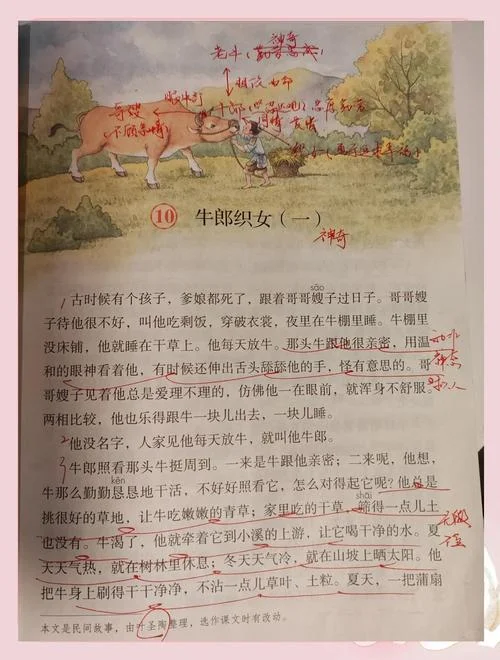 神奇
老牛(勤劳
相依为命
哥嫂
牛郎(
同情
织女(
10 牛郎织女(一)
神奇
sǎo
1古时候有个孩子，爹娘都死了，跟着哥哥嫂子过日子。哥哥嫂
子待他很不好，叫他吃剩饭，穿破衣裳，夜里在牛棚里睡。牛棚里
没床铺，他就睡在干草上。他每天放牛。那头牛跟他很亲密，用温
和的眼神看着他，有时候还伸出舌头舔舔他的手，怪有意思的。哥
哥嫂子见着他总是爱理不理的，仿佛他一在眼前，就浑身不舒服。
拟人
两相比较，他也乐得跟牛一块儿出去，一块儿睡。
2他没名字，人家见他每天放牛，就叫他牛郎。
3牛郎照看那头牛挺周到。一来是牛跟他亲密；二来呢，他想，
kěn
牛那么勤勤恳恳地干活，不好好照看它，怎么对得起它呢？他总是
shāi
挑很好的草地，让牛吃嫩嫩的青草；家里吃的干草，筛得一点儿土
也没有。牛渴了，他就牵着它到小溪的上游，让它喝干净的水。夏
天天气热，就在树林里休息；冬天天气冷，就在山坡上晒太阳。他
把牛身上刷得干干净净，不沾一点儿草叶、土粒。夏天，一把蒲扇
本文是民间故事，由叶圣陶整理，选作课文时有改动。